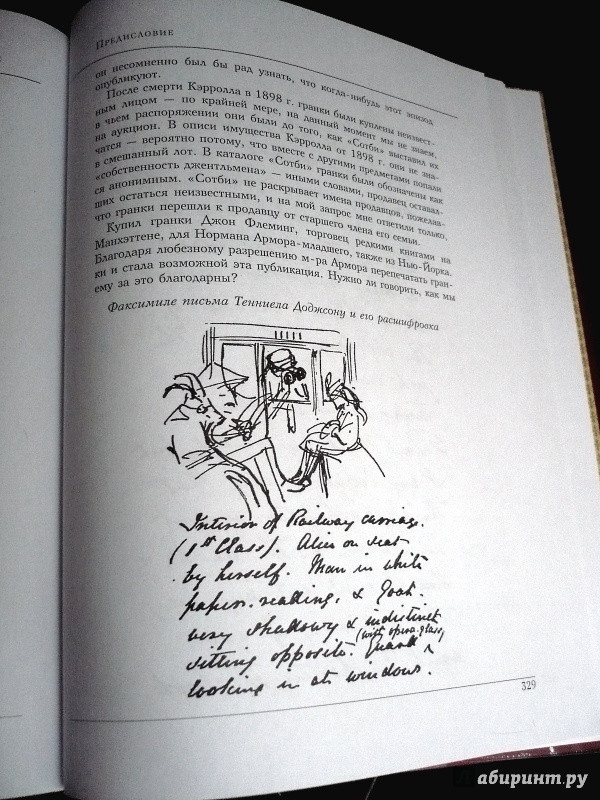 Предисловие
он несомненно был бы рад узнать, что когда-нибудь этот эпизод
опубликуют.
После смерти Кэрролла в 1898 г. гранки были куплены неизвест-
ным лицом — по крайней мере, на данный момент мы не знаем,
в чьем распоряжении они были до того, как «Сотби» выставил их
на аукцион. В описи имущества Кэрролла от 1898 г. они не зна-
чатся — вероятно потому, что вместе с другими предметами попали
в смешанный лот. В каталоге «Сотби» гранки были обозначены как
«собственность джентльмена» — иными словами, продавец оставал-
ся анонимным. «Сотби» не раскрывает имена продавцов, пожелав-
ших остаться неизвестными, и на мой запрос мне ответили только,
что гранки перешли к продавцу от старшего члена его семьи.
Купил гранки Джон Флеминг, торговец редкими книгами на
Манхэттене, для Нормана Армора-младшего, также из Нью-Йорка.
Благодаря любезному разрешению м-ра Армора перепечатать гран-
ки и стала возможной эта публикация. Нужно ли говорить, как мы
ему за это благодарны?
Факсимиле письма Тенниела Доджсону и его расшифровка
Interior of Railway carriage.
(1st Class). Alice on seat
by herself. Man in white
paper. reading. & Goat.
very shadowy & indistinct
(with opera-glass)
sitting opposite. Guard ^
looking in at window.
329
Лабиринт.ру